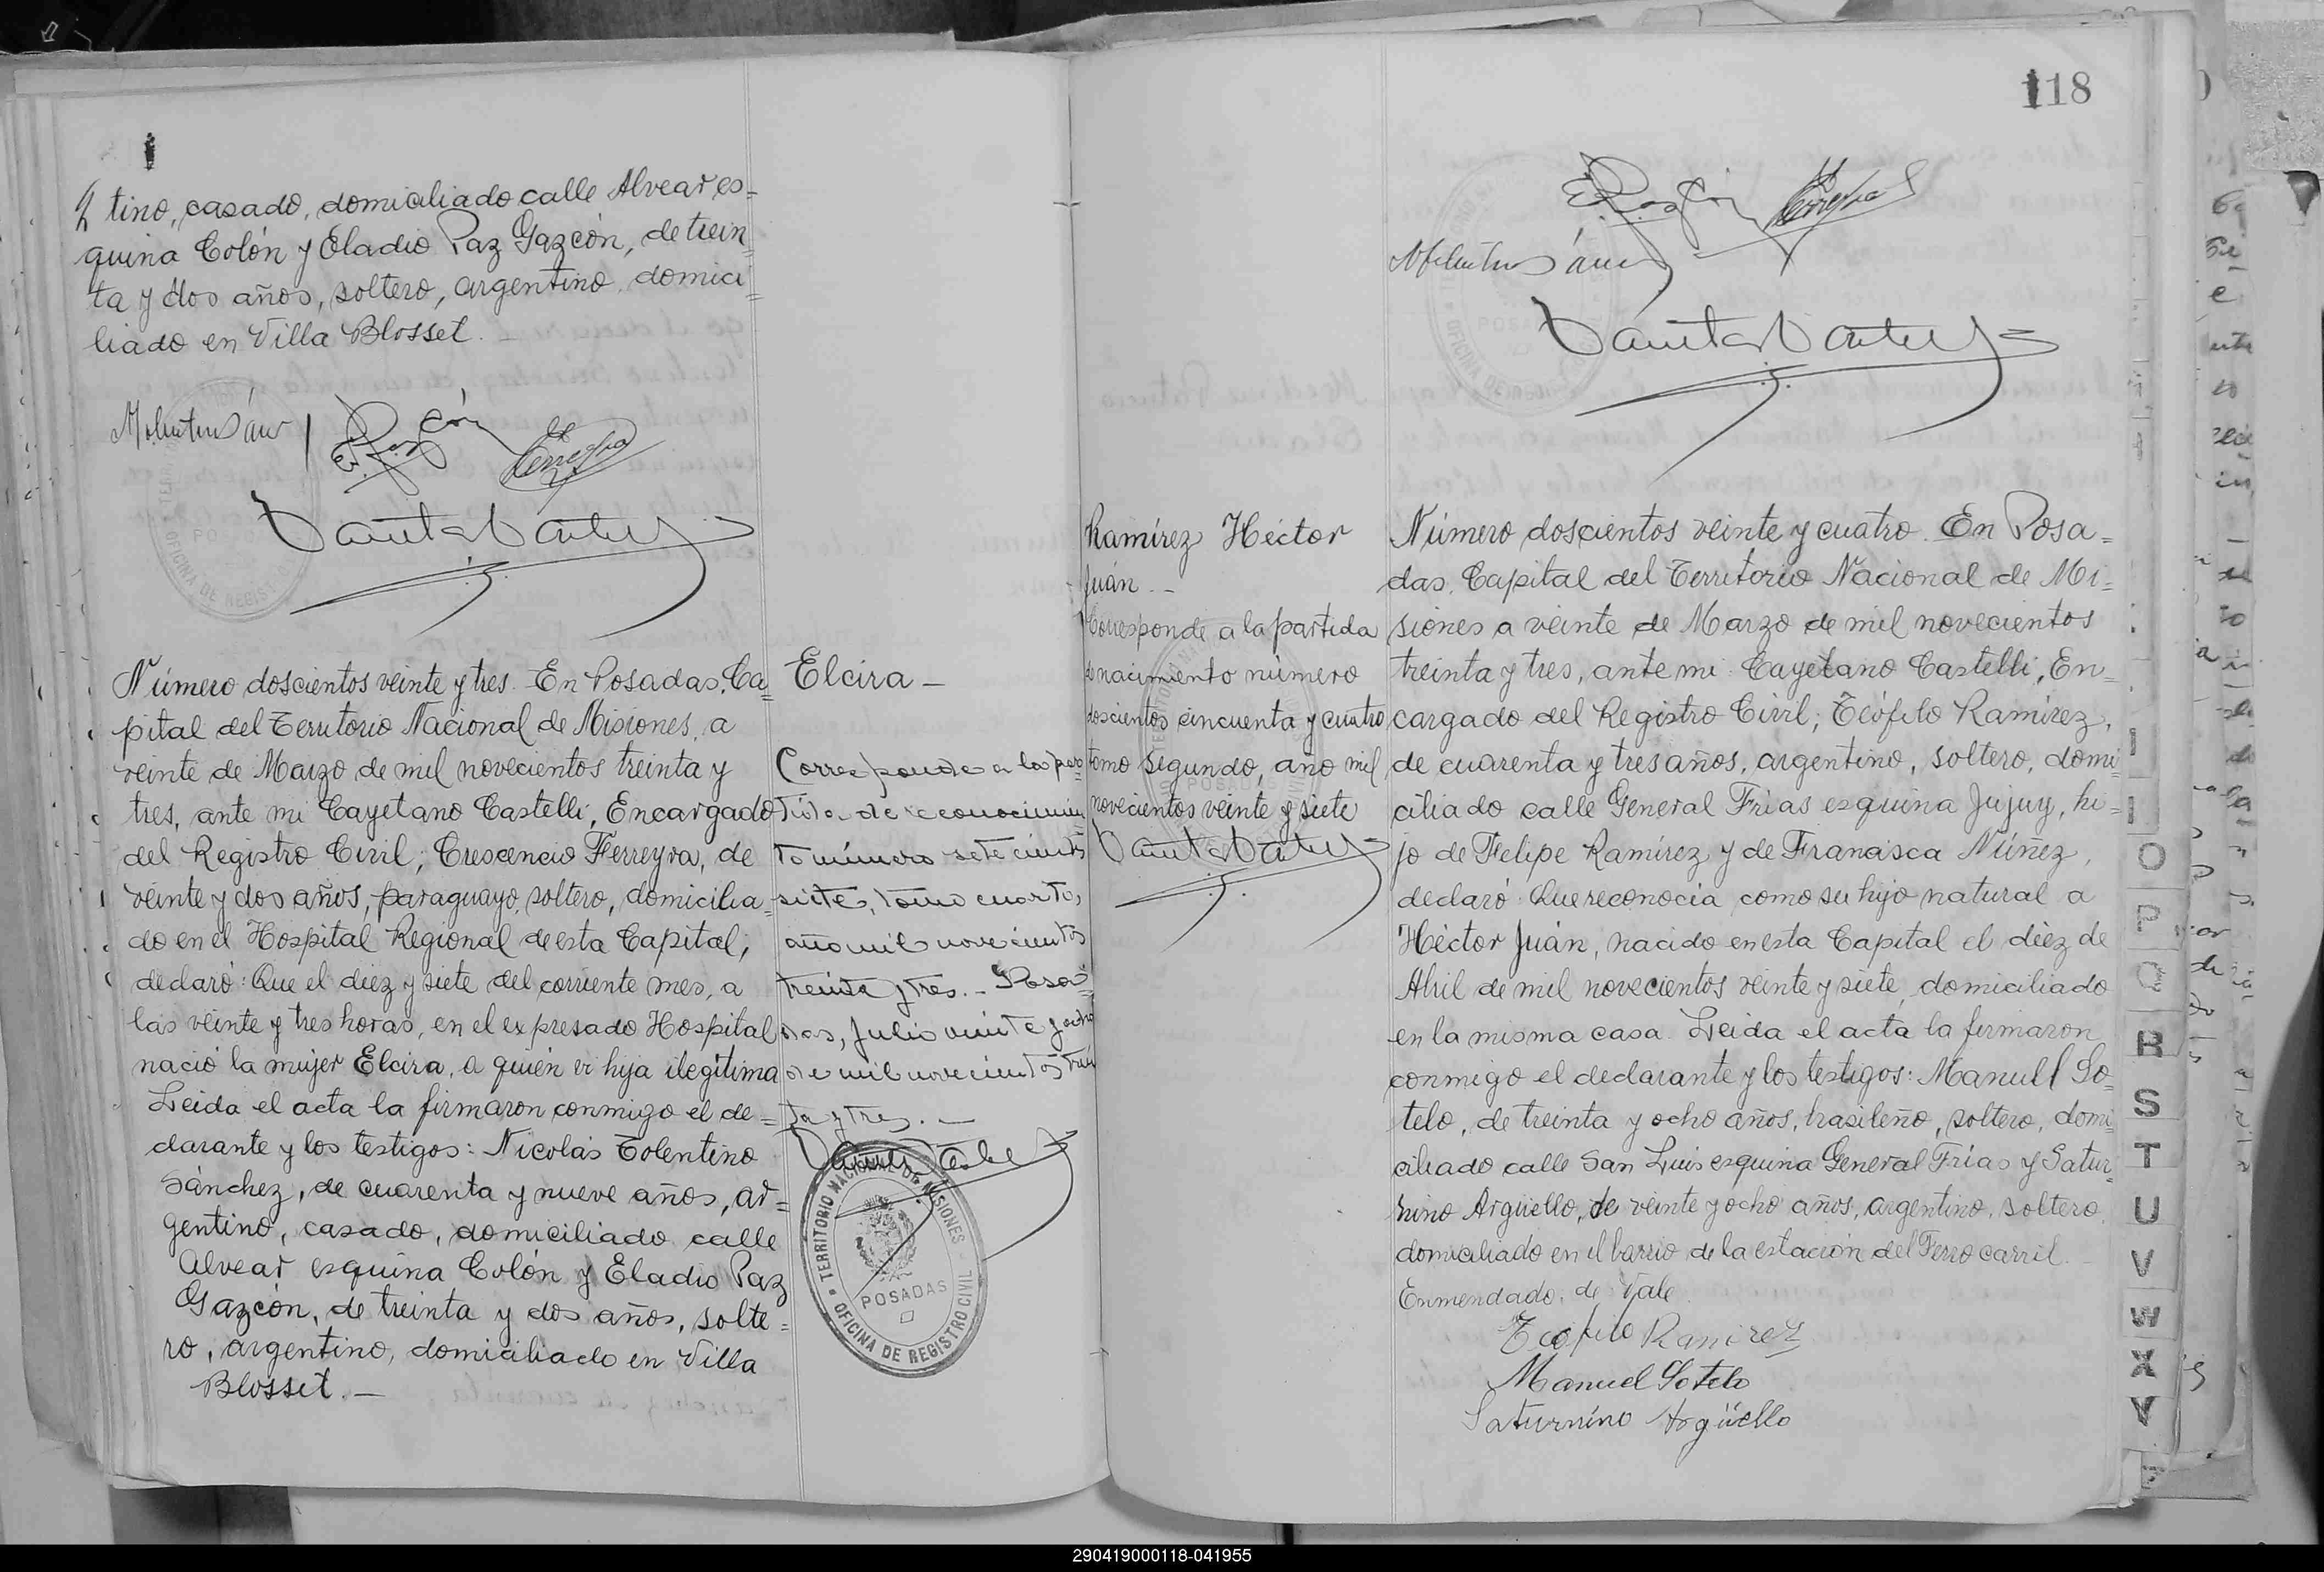 tino, casado, domiciliado calle Alvear es=
quina Colón y Eladio Paz Gazcón, de trein=
ta y dos años, soltero, argentino, domici=
liado en Villa Blosset.
Número doscientos veinte y tres. En Posadas, Ca=
pital del Territorio Nacional de Misiones, a
veinte de Marzo de mil novecientos treinta y
tres, ante mi Cayetano Castelli, Encargado
del Registro Civil; Crescencio Ferreyra, de
veinte y dos años, paraguayo, soltero, domicilia=
do en el Hospital Regional de esta Capital;
declaró: Que el diez y siete del corriente mes, a
las veinte y tres horas, en el expresado Hospital
nació la mujer Elcira, a quién vi hija ilegítima
Leida el acta la firmaron conmigo el de=
clarante y los testigos: Nicolás Tolentino
Sánchez, de cuarenta y nueve años, ar=
gentino, casado, domiciliado calle
Alvear esquina Colón y Eladio Paz
Gazcón, de treinta y dos años, solte=
ro, argentino, domiciliado en Villa
Blosset.—
Elcira—
Corresponde a la par=
tida de reconocimien
to número setecientos
siete, tomo cuarto,
año mil novecientos
treinta y tres.- Posa=
das, Julio veinte y ocho
de mil novecientos trein
ta y tres.—
TERRITORIO NACIONAL DE MISIONES
POSADAS
OFICINA DE REGISTRO CIVIL
118
Ramírez Héctor
Juán.-
Corresponde a la partida
de nacimiento número
doscientos cincuenta y cuatro
tomo segundo, año mil
novecientos veinte y siete
Número doscientos veinte y cuatro. En Posa=
das, Capital del Territorio Nacional de Mi=
siones a veinte de Marzo de mil novecientos
treinta y tres, ante mi Cayetano Castelli, En=
cargado del Registro Civil; Teófilo Ramírez,
de cuarenta y tres años, argentino, soltero, domi=
ciliado calle General Frías esquina Jujuy, hi=
jo de Felipe Ramírez y de Francisca Núñez,
declaró: Que reconocía como su hijo natural a
Héctor Juán, nacido en esta Capital el diez de
Abril de mil novecientos veinte y siete, domiciliado
en la misma casa. Leida el acta la firmaron
conmigo el declarante y los testigos: Manuel So=
telo, de treinta y ocho años, brasileño, soltero, domi=
ciliado calle San Luis esquina General Frías y Satur=
nino Argüello, de veinte y ocho años, argentino, soltero,
domiciliado en el barrio de la estación del Ferro carril.-
Enmendado: de Vale.
Teofilo Ramirez
Manuel Sotelo
Saturnino Argüello
O
P
Q
R
S
T
U
V
W
X
Y
290419000118-041955